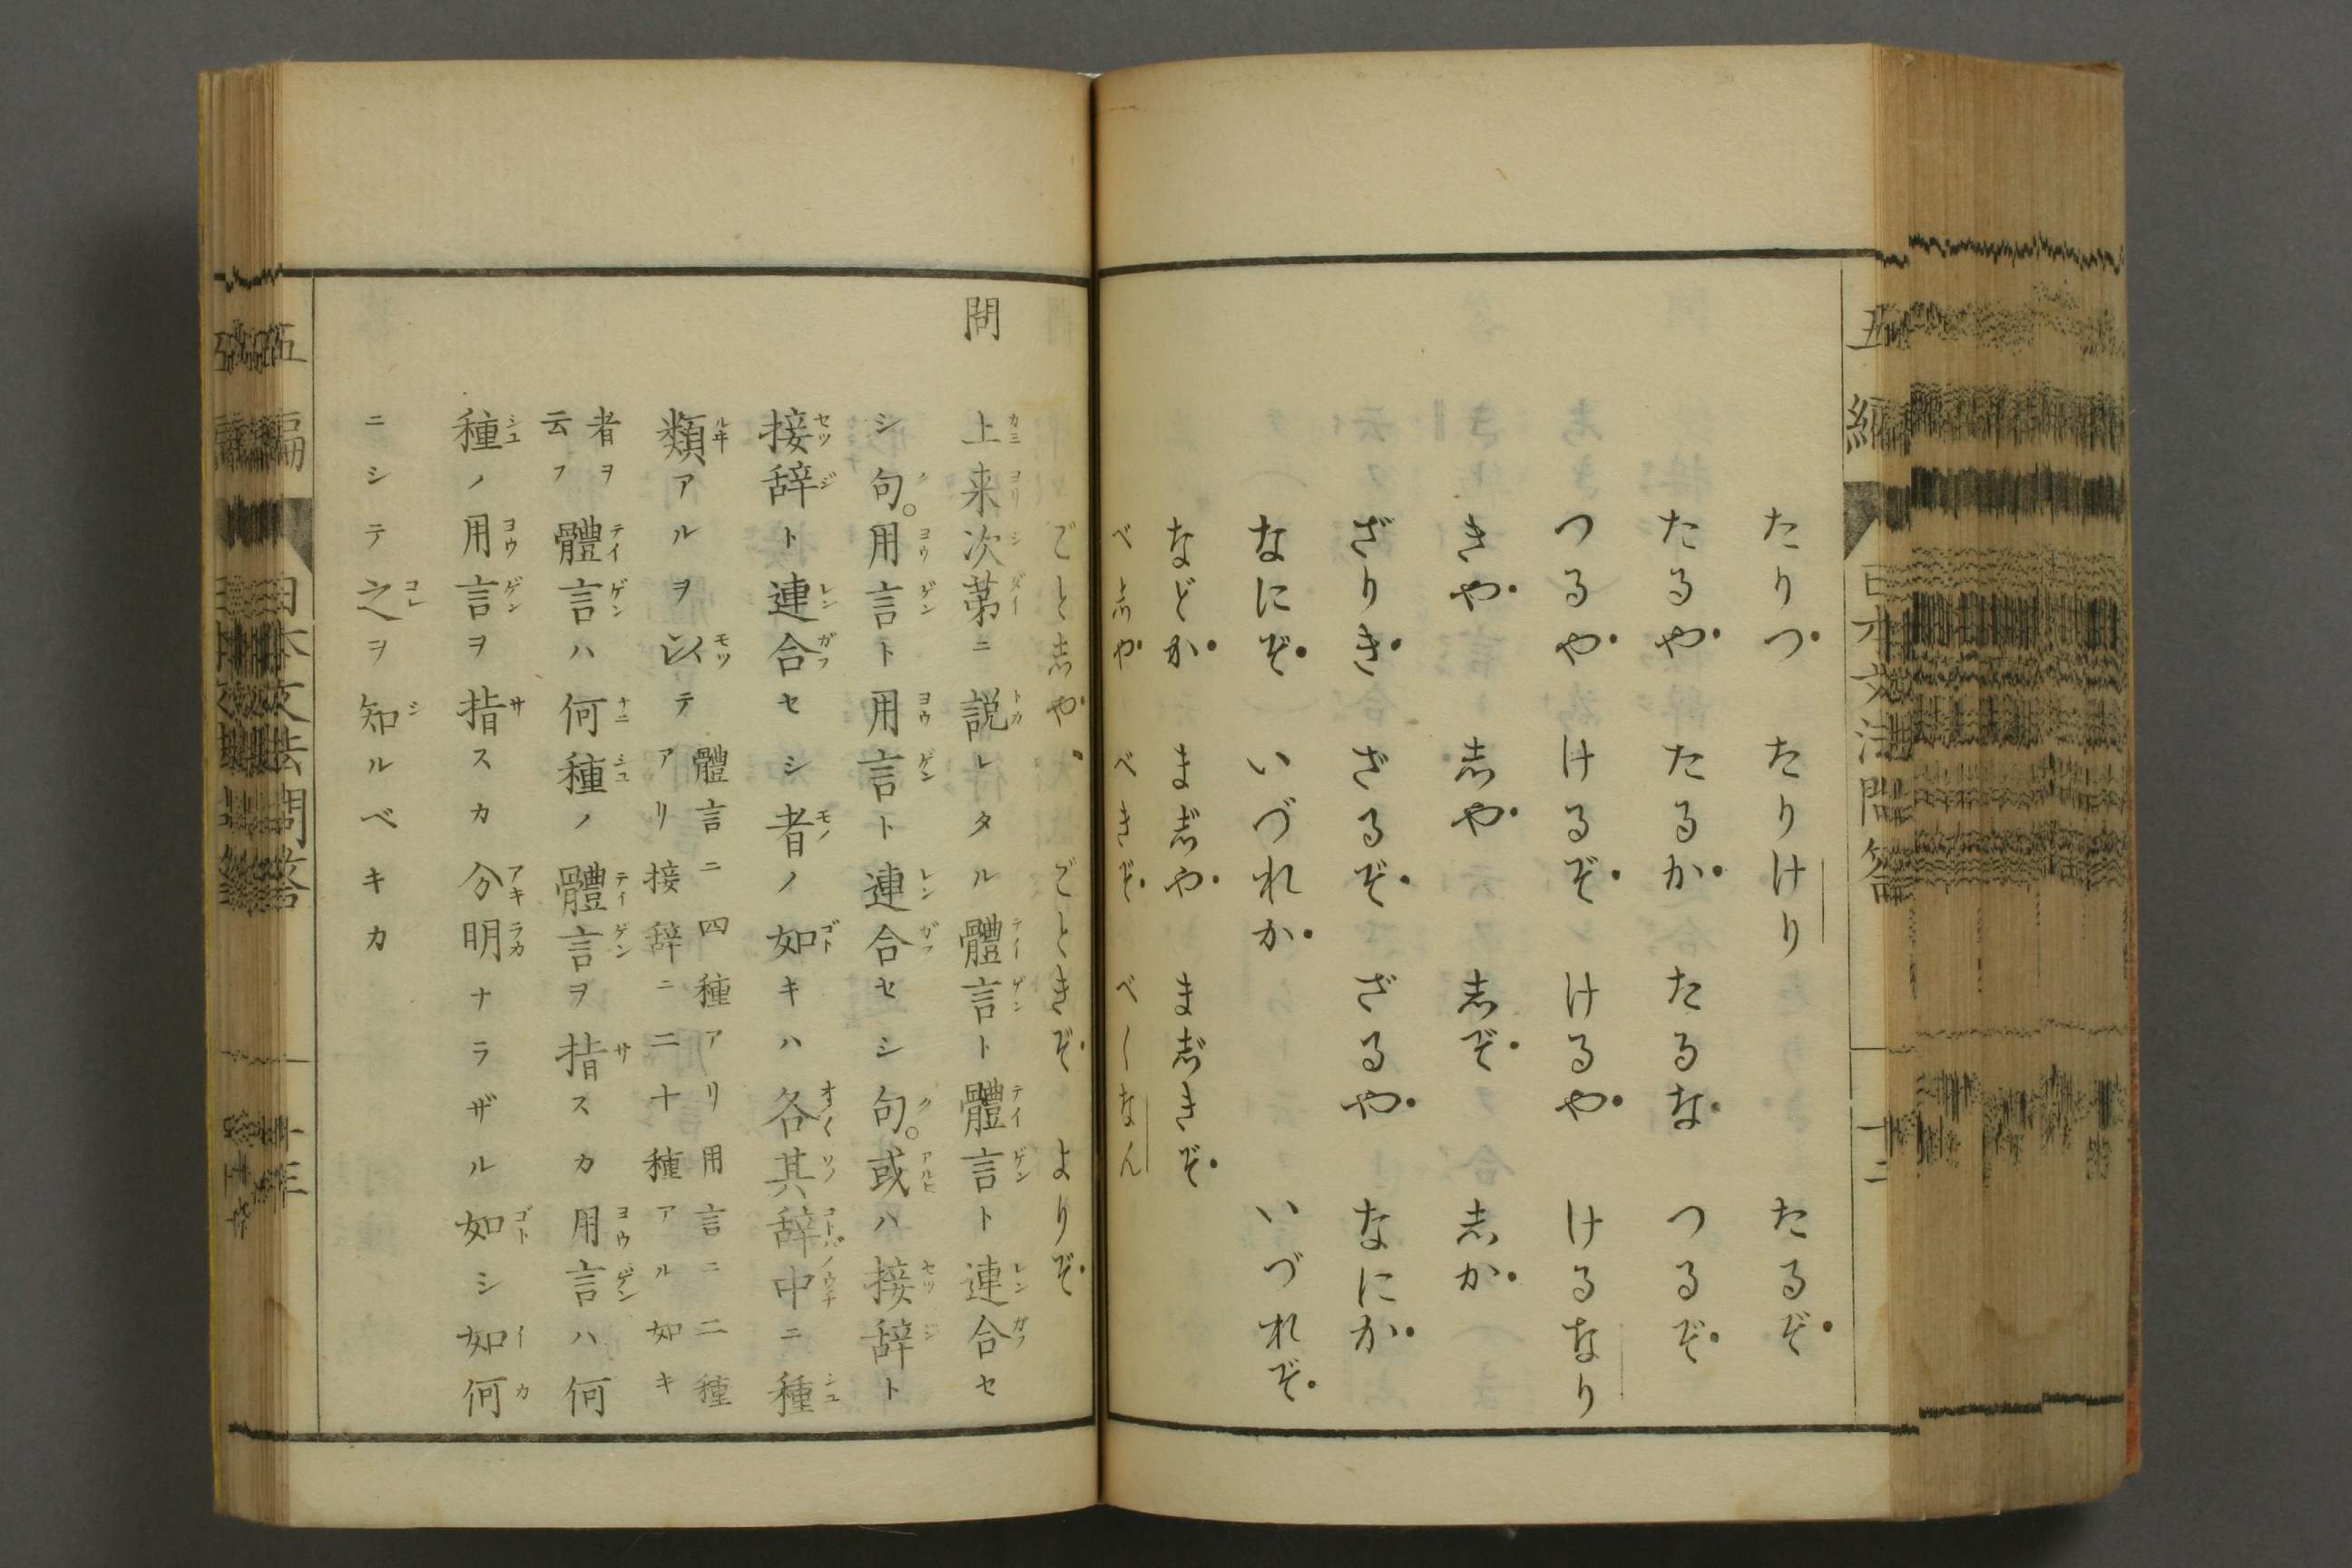 たりつ　たりけり　たるぞ
たるや　たるか　たるな　つるぞ
つるや　けるぞ　けるや　けるなり
きや　志や　志ぞ　志か
ざりき　ざるぞ　ざるや　なにか
なにぞ　いづれか　いづれぞ
などか　まじや　まじきぞ
べ志や　べきぞ　べしなん
日本文法問答
ごと志や　ごときぞ　よりぞ
問　上来次第ニ説レタル體言ト體言ト連合セ
シ句。用言ト用言ト連合セシ句。或ハ接辞ト
接辞ト連合セシ者ノ如キハ各其辞中ニ種
類アルヲ以テ體言ニ四種アリ用言ニ二種
アリ接辞ニ二十種アル如キ
者ヲ
云フ體言ハ何種ノ體言ヲ指スカ用言ハ何
種ノ用言ヲ指スカ分明ナラザル如シ如何
ニシテ之ヲ知ルベキカ